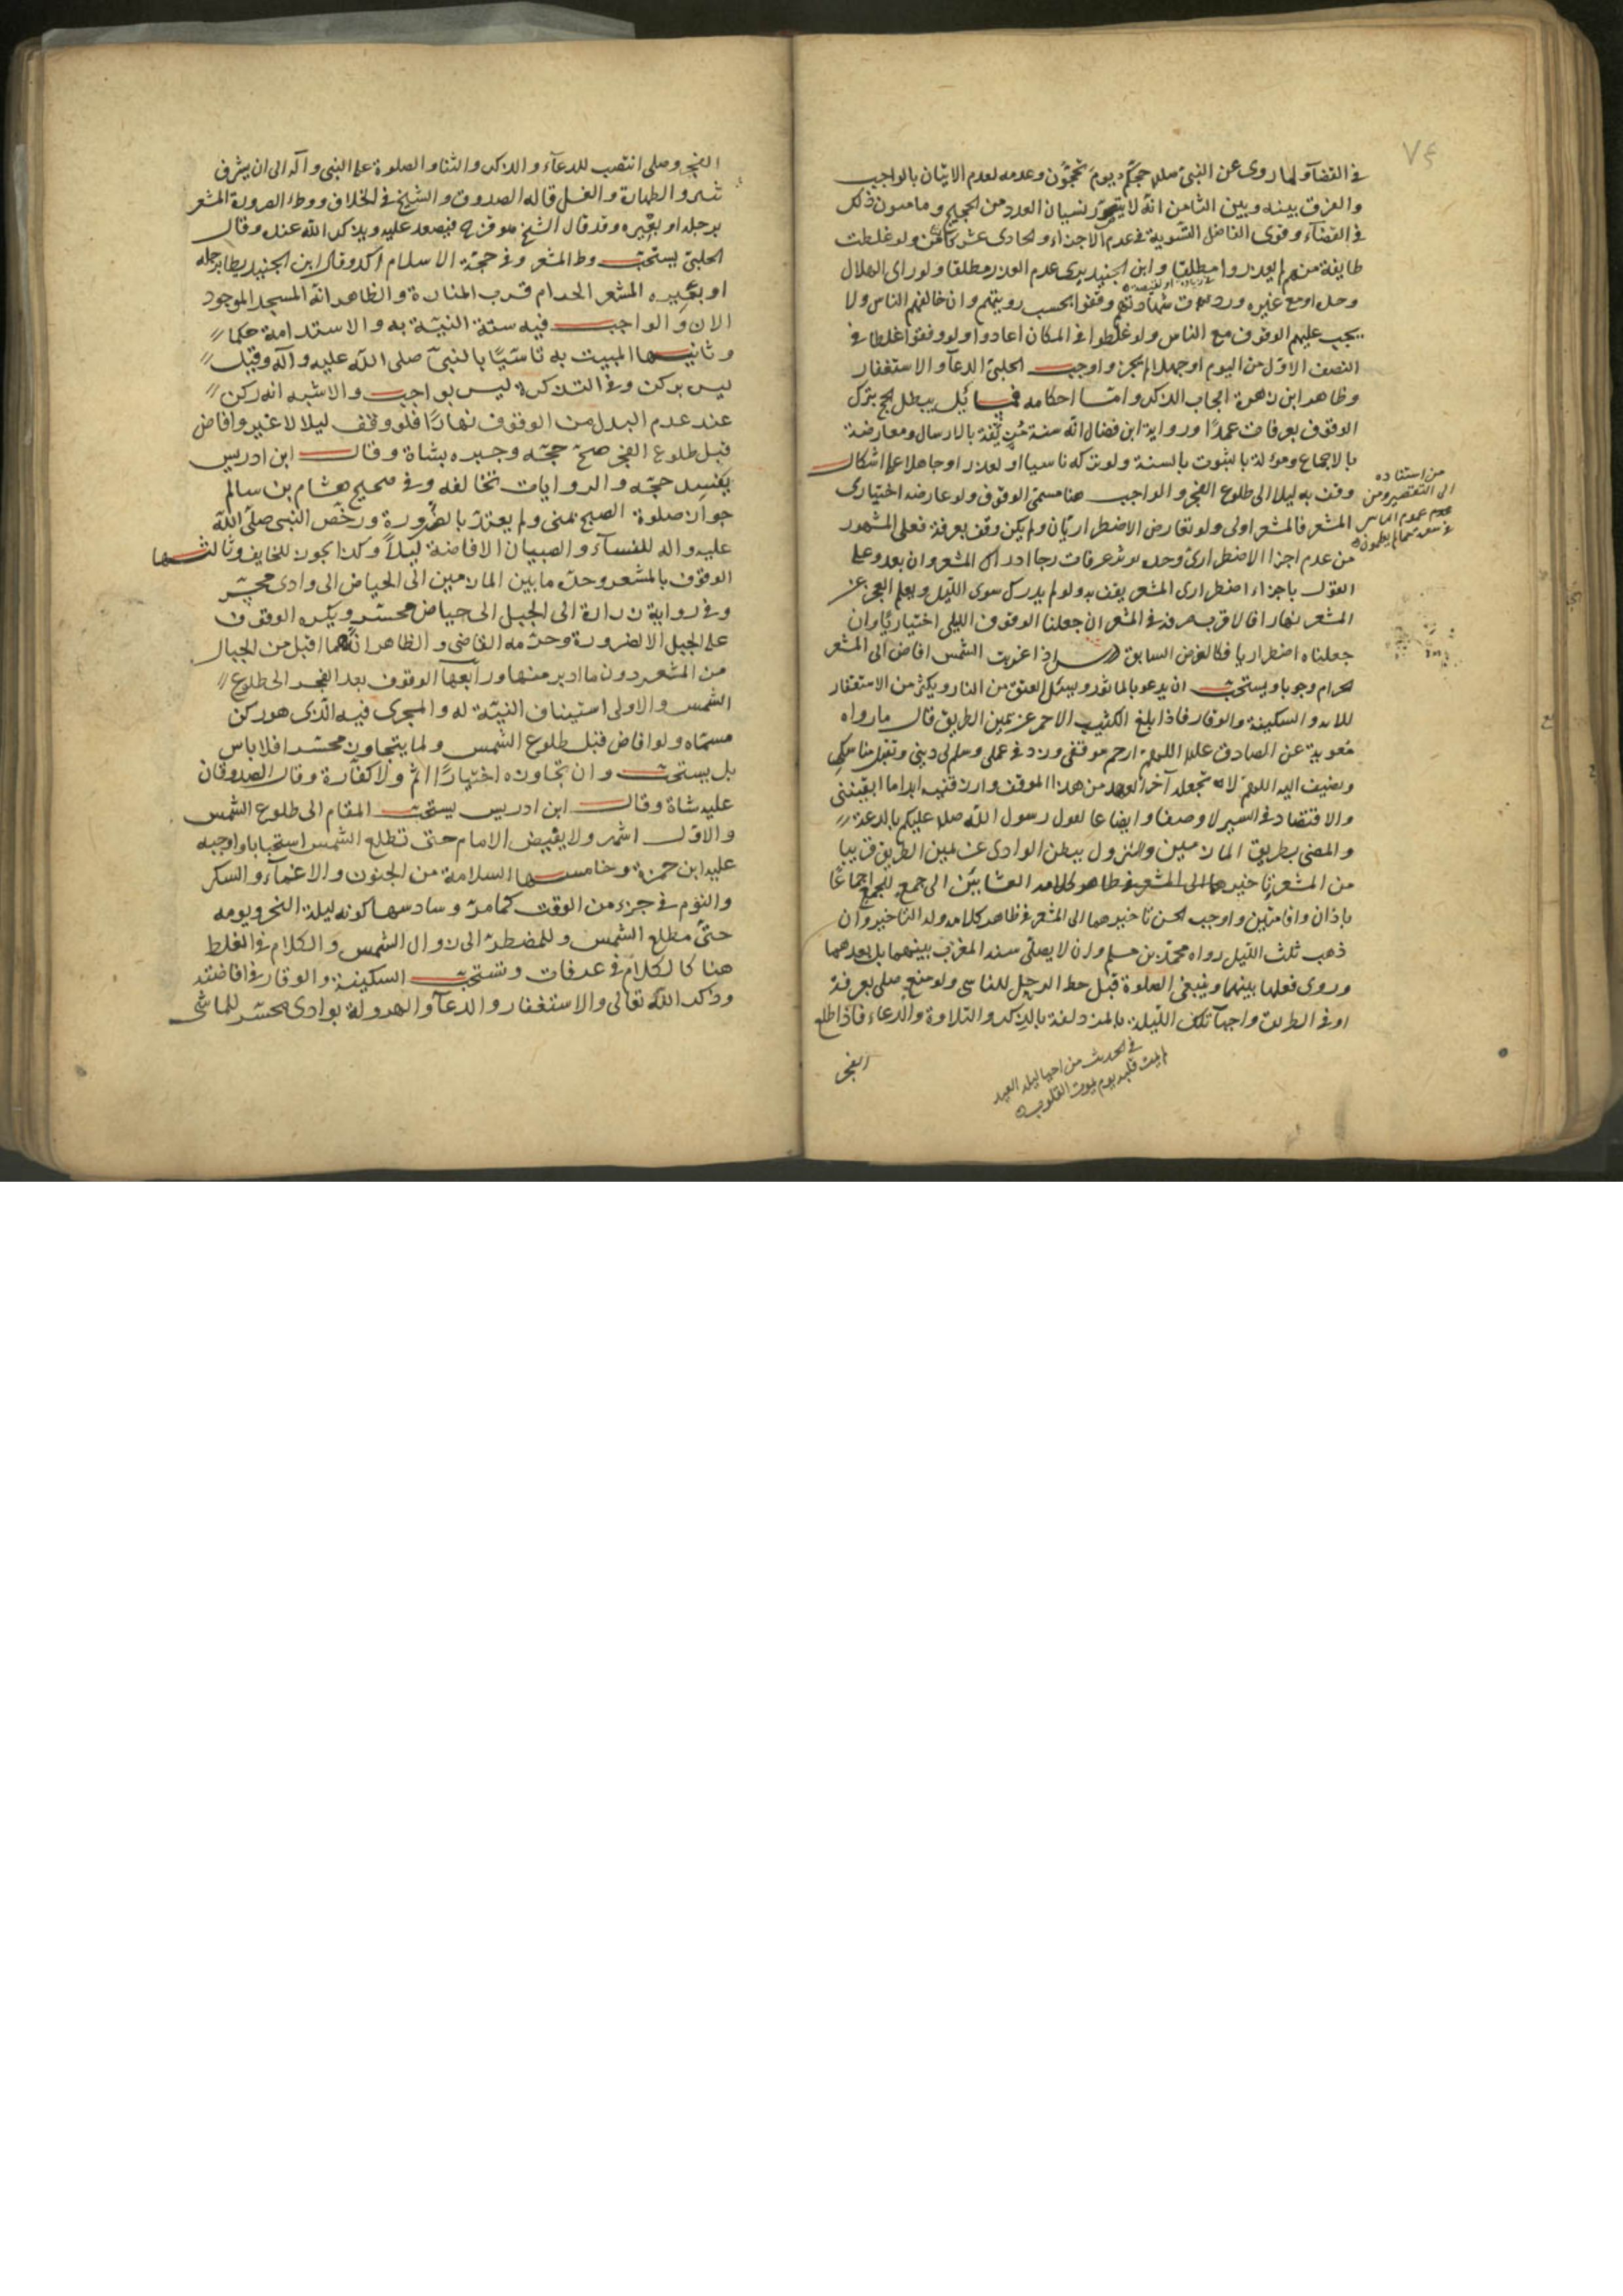 ٧٤
في القضآء لما روى عن النبي صلى حجكم يوم تحجون وعدمه لعدم الاتيان بالواجب
والفرق بينه وبين الثامن انه لا يتصور نسيان العدد من الحجيج وما من ذلك
في القضآء وقوى الفاضل التسوية في عدم الاجزاء والحادى عشر كالثامن ولو غلطت
طايفة منهم لم يعذروا مطلقا وابن الجنيد يرى عدم العذر مطلقا ولو راى الهلال
وحده او مع غيره وردت شهادتهم وقفوا بحسب رويتهم وان خالفهم الناس ولا
يجب عليهم الوقوف مع الناس ولو غلطوا في المكان اعادوا ولو وقفوا غلطا في
النصف الاول من اليوم او جهلا لم يجز واوجب الحلبي الدعآء والاستغفار
وظاهر ابن زهرة ايجاب الذكر واما احكامه فمسائل يبطل الحج بترك
الوقوف بعرفات عمدًا ورواية ابن فضال انه سنة مزيفة بالارسال ومعارضة
بالاجماع ومؤلة بالثبوت بالسنة ولو تركه ناسيا او لعذر او جاهلا على اشكال
وقف به ليلا الى طلوع الفجر والواجب هنا مسمى الوقوف ولو عارضه اختيارى
المشعر فالمشعر اولى ولو تعارض الاضطراريان ولم يكن وقف بعرفة فعلى المشهور
من عدم اجزا الاضطرارى وحده يوثر عرفات رجا ادراك المشعر وان بعد وعلى
القول باجزاء اضطرارى المشعر يقف به ولو لم يدرك سوى الليل ويعلم العجز عن
المشعر نهارا فالاقرب صرفه في المشعر ان جعلنا الوقوف الليلى اختياريًا وان
جعلناه اضطراريا فكالفرض السابق درس اذا غربت الشمس افاض الى المشعر
الحرام وجوبا ويستحب ان يدعو بالماثور ويسئل العتق من النار ويكثر من الاستغفار
للاية والسكينة والوقار فاذا بلغ الكثيب الاحمر عن يمين الطريق قال ما رواه
معوية عن الصادق علىه اللهم ارحم موقفى وزد في عملى وسلم لى دينى وتقبل مناسكى
ويضيف اليه اللهم لا تجعله آخر العهد من هذا الموقف وارزقنيه ابدا ما ابقيتنى
والاقتصاد في السير لا وصفا وايضاعا لقول رسول الله صلى عليكم بالدعة
والمضى بطريق المازمين والنزول ببطن الوادى عن يمين الطريق قريبا
من المشعر وتاخير العشائين الى جمع للجمع اجماعًا
باذان واقامتين واوجب الحسن تاخيرهما الى المشعر في ظاهر كلامه وله التاخير وان
ذهب ثلث الليل رواه محمد بن مسلم وان لا يصلى سنة المغرب بينهما بل بعدهما
وروى فعلها بينهما وينبغى الصلوة قبل حط الرحل للتاسى ولو منع صلى بعرفة
او في الطريق واحيآء تلك الليلة بالمزدلفة بالذكر والتلاوة والدعاء فاذا طلع
الفجر
من استناده
الى التقصير ومن
عدم عموم الناس
في سعة مما لم يعلمون
في الحديث من احيا ليلة العيد
لم يمت قلبه يوم يموت القلوب
الفجر وصلى انتصب للدعآء والذكر والثنا والصلوة على النبي وآله الى ان يشرق
ثبير والطهارة والغسل قاله الصدوق والشيخ في الخلاف ووطء الصرورة المشعر
برجله او بعيره وقد قال الشيخ هو قزح فيصعد عليه ويذكر الله عنده وقال
الحلبي يستحب وط المشعر وفي حجة الاسلام آكد وقال ابن الجنيد يطا برجله
او بعيره المشعر الحرام قرب المنارة والظاهر انه المسجد الموجود
الان والواجب فيه ستة النية به والاستدامة حكما
وثانيها المبيت به تاسيًا بالنبي صلى الله عليه وآله وقيل
ليس بركن وفي التذكرة ليس بواجب والاشبه انه ركن
عند عدم البدل من الوقوف نهارًا فلو وقف ليلا لا غير وافاض
قبل طلوع الفجر صح حجه وجبره بشاة وقال ابن ادريس
يفسد حجه والروايات تخالفه وفي صحيح هشام بن سالم
جواز صلوة الصبح بمنى ولم يعتد بالضرورة ورخص النبي صلى الله
عليه واله للنسآء والصبيان الافاضة ليلاً وكذا يجوز للخايف وثالثها
الوقوف بالمشعر وحده ما بين المازمين الى الحياض الى وادى محسر
وفي رواية زرارة الى الجبل الى حياض محسر ويكره الوقوف
على الجبل الا لضرورة وحرمه القاضى والظاهر انه ما اقبل من الجبال
من المشعر دون ما ادبر منها ورابعها الوقوف بعد الفجر الى طلوع
الشمس والاولى استيناف النية له والمجزى فيه الذى هو ركن
مسماه ولو افاض قبل طلوع الشمس ولما يتجاوز محسرا فلا باس
بل يستحب وان تجاوزه اختيارًا اثم ولا كفارة وقال الصدوقان
عليه شاة وقال ابن ادريس يستحب المقام الى طلوع الشمس
والاول اشهر ولا يفيض الامام حتى تطلع الشمس استحبابا واوجبه
عليه ابن حمزة وخامسها السلامة من الجنون والاغمآء والسكر
والنوم في جزء من الوقت كما مر وسادسها كونه ليلة النحر ويومه
حتى مطلع الشمس وللمضطر الى زوال الشمس والكلام في الغلط
هنا كالكلام في عرفات وتستحب السكينة والوقار في افاضته
وذكر الله تعالى والاستغفار والدعآء والهرولة بوادى محسر للماشى